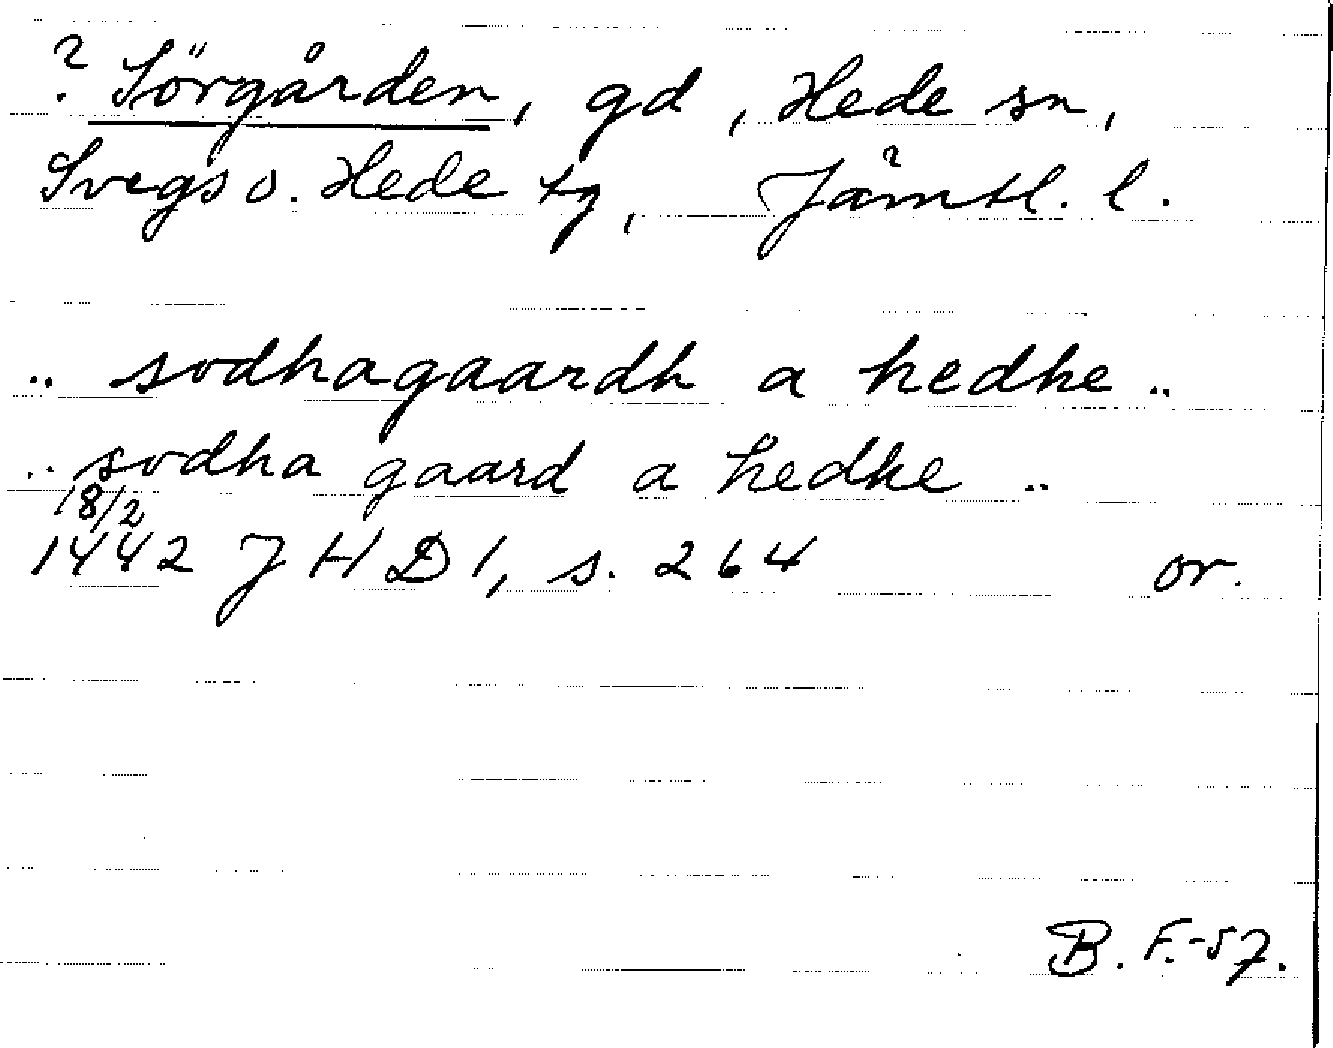 ? Sörgården, gd, Hede sn,
Svegs o. Hede tg, Jämtl. l.
.. sodhagaardh a hedhe ..
.. sodha gaard a hedhe ..
18/2
1442 JHD 1, s. 264 or.
B. F.-57.